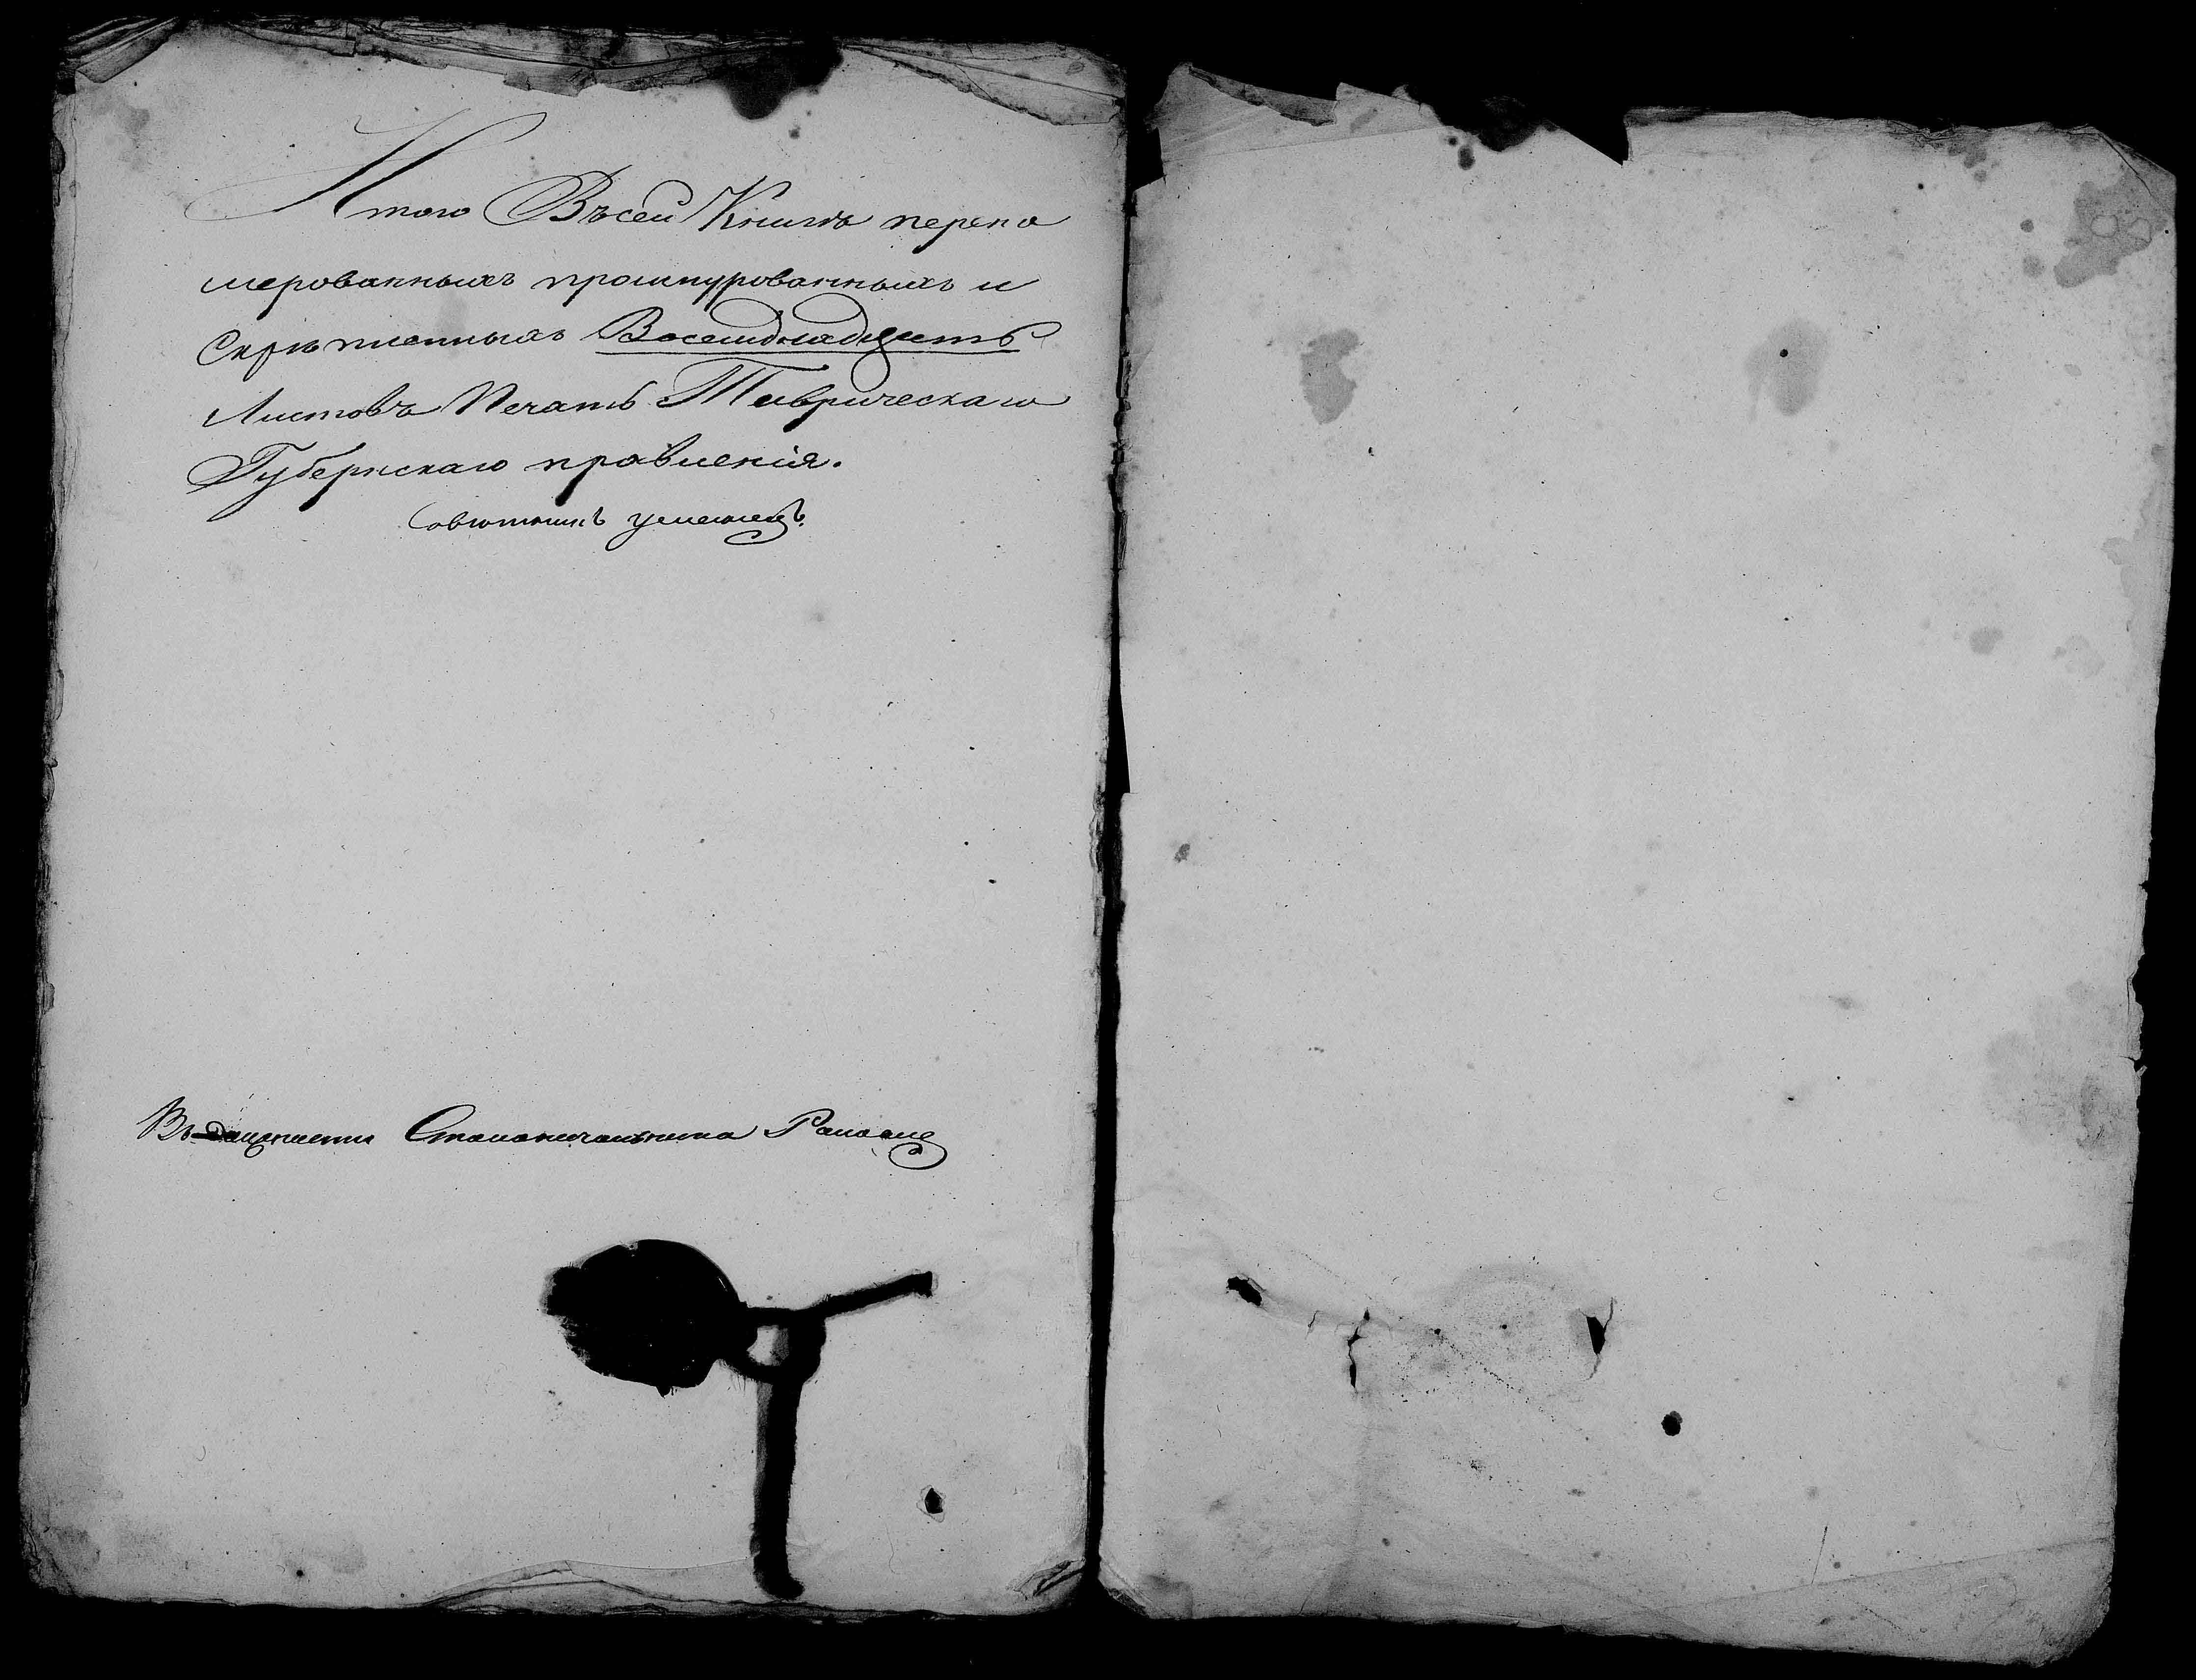 Итого Въсей Книгѣ перено
мерованныхъ прошнурованныхъ и
Скрѣпленныхъ Восемдиадцать
Листовъ Печать Таврическаго
Губернскаго правленія.
Совѣтникъ
Въ должности Столоначальника